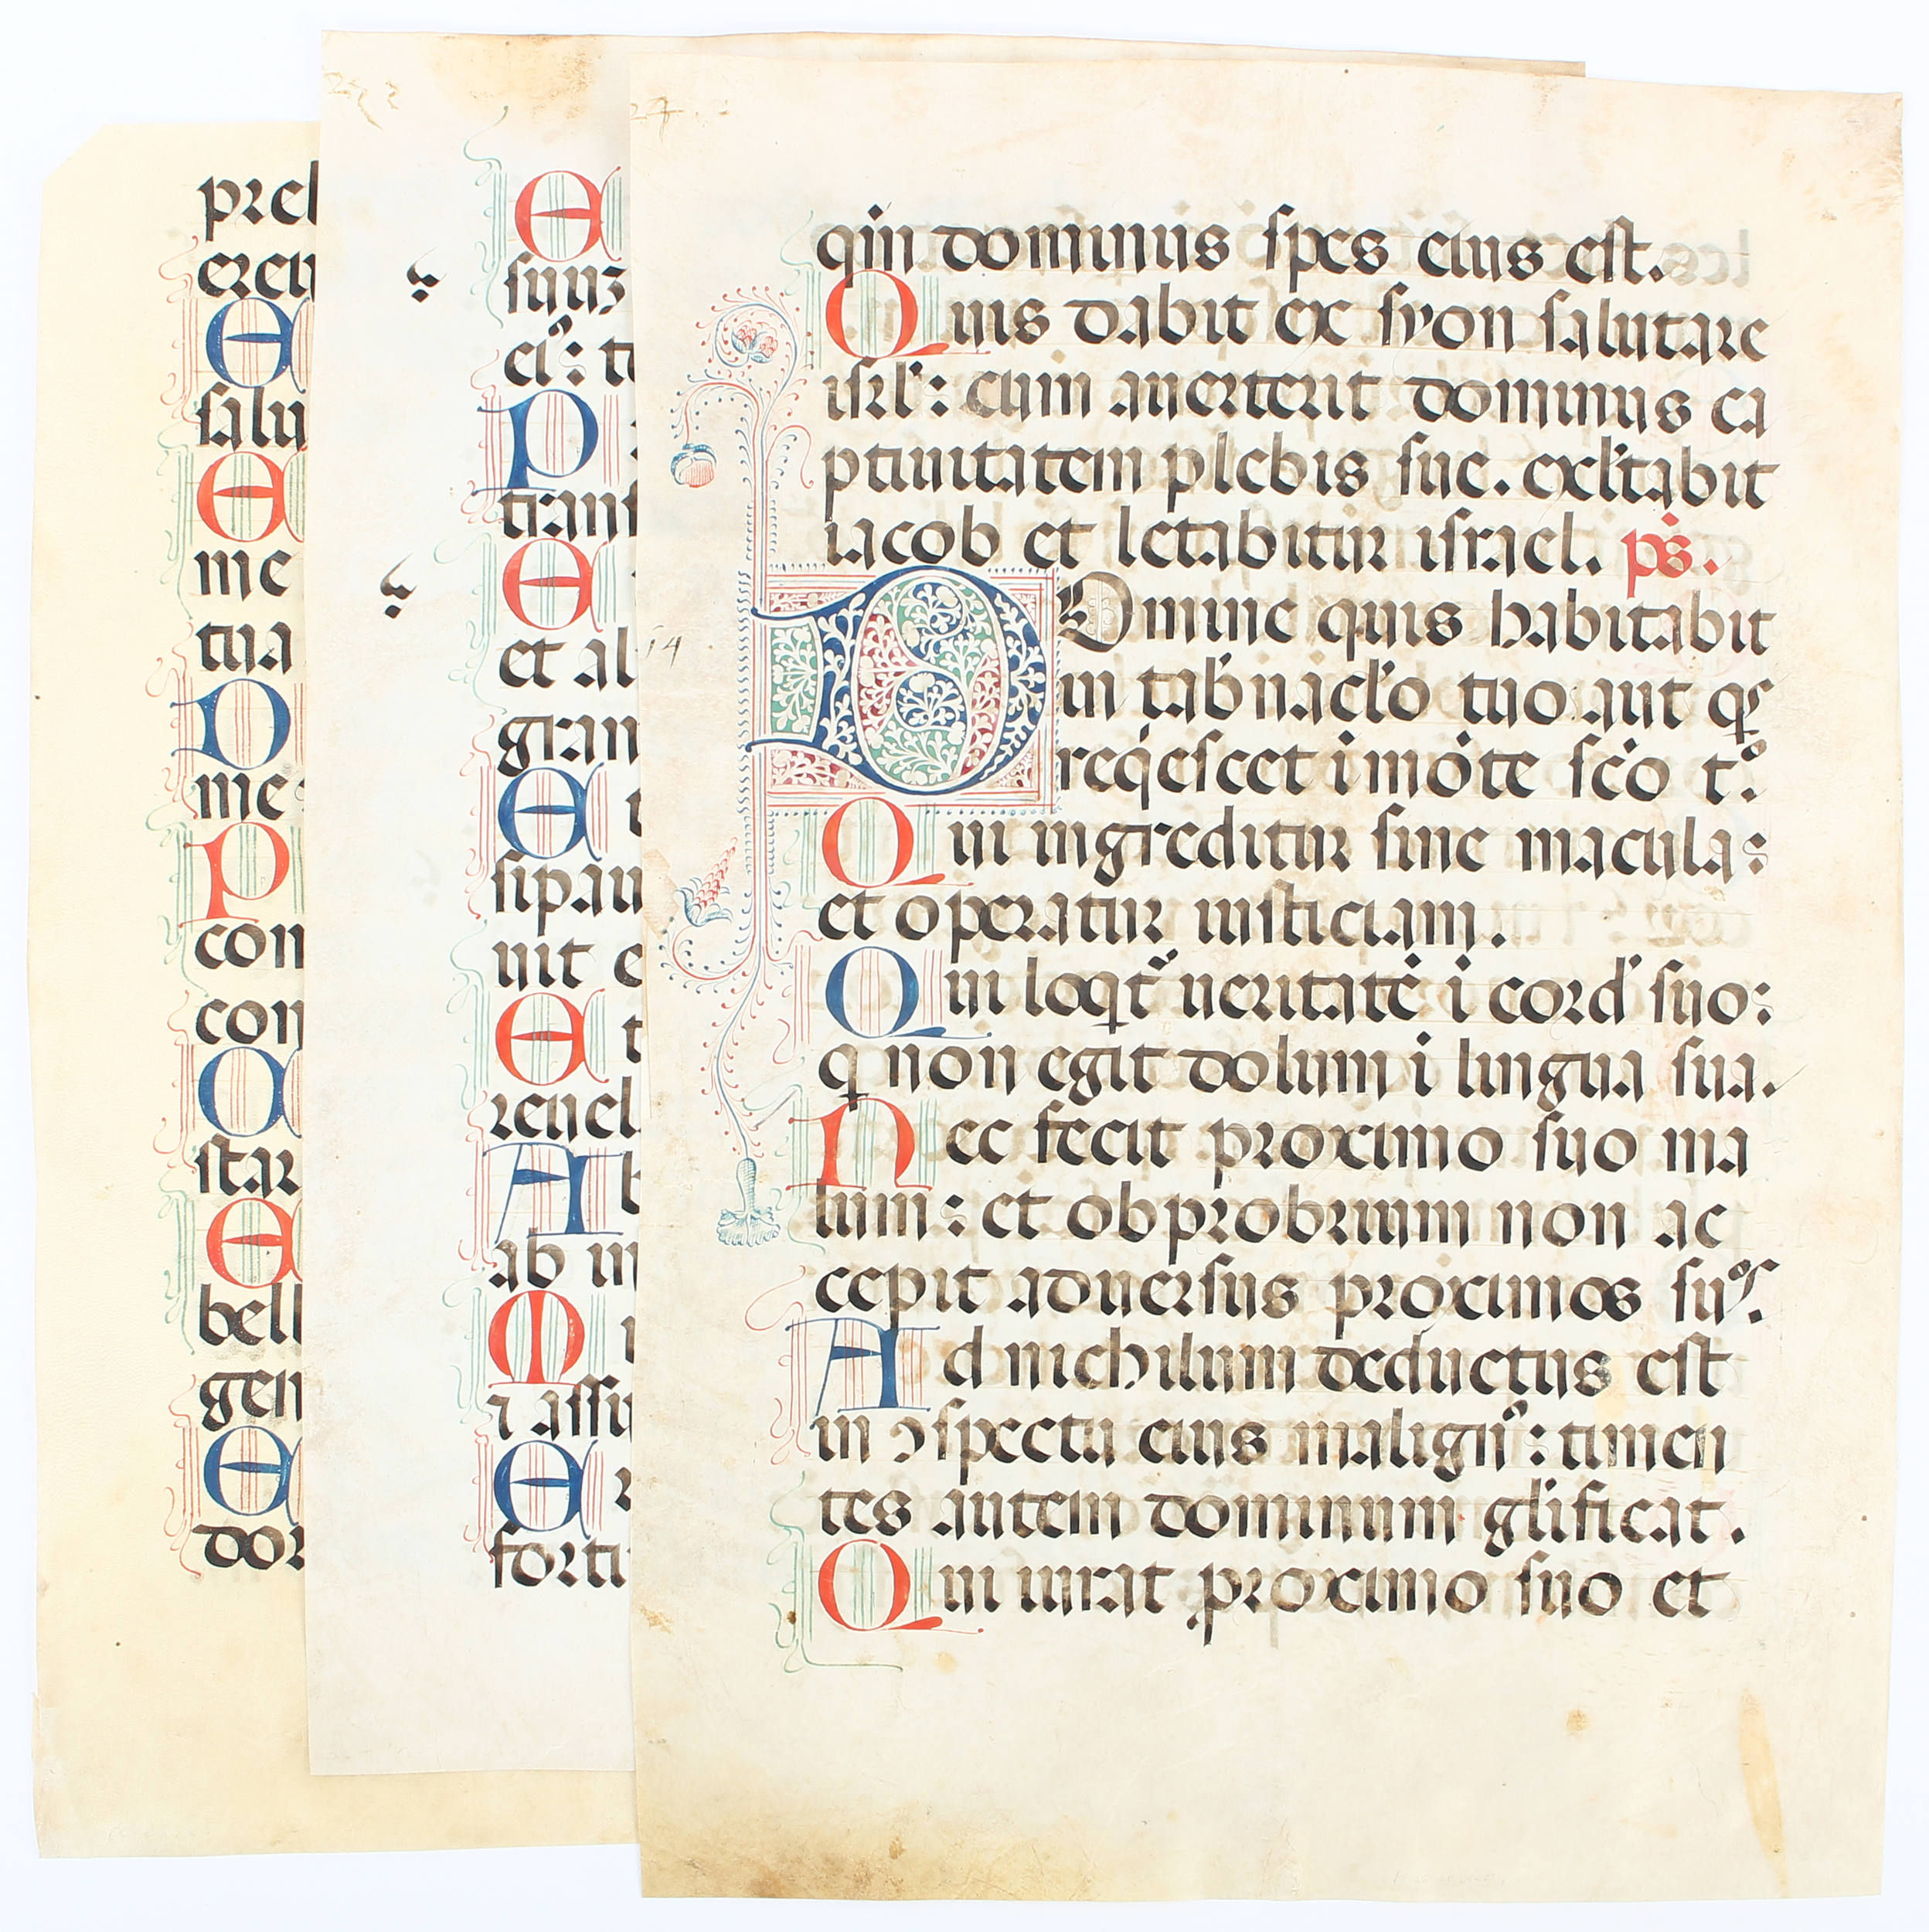 prel
ereu
E
salu
E
me
tua
D
me
P
con
con
O
star
E
bell
gen
E
dor
E
suuʒ
cl᷒: te
P
tranſ
E
et al
gran
E t
ſipau
uit e
E t
reuel
A b
ab in
M
⁊ aſſu
E r
forti
24
qm dominus ſpes eius eſt.
Quis dabit ex ſyon ſalutare
iſrl': cum auerterit dominus ca
ptiuitatem plebis ſue. exl'tabit
iacob et letabitur iſrael. ps.
14
DOmine quis habitabit
in tab'nacl'o tuo aut qs
reqeſcet i mōte ſcō t°.
Qui ingreditur ſine macula:
et operatur iuſticiam.
Qui loqt' ueritatē i cord' ſuo:
q non egit dolum i lingua ſua.
Nec fecit proximo ſuo ma
lum: et obprobrium non ac
cepit aduerſus proximos ſuos.
Ad nichilum deductus eſt
in ɔſpectu eius malign᷒: timen
tes autem dominum gl'ificat.
Qui iurat proximo ſuo et